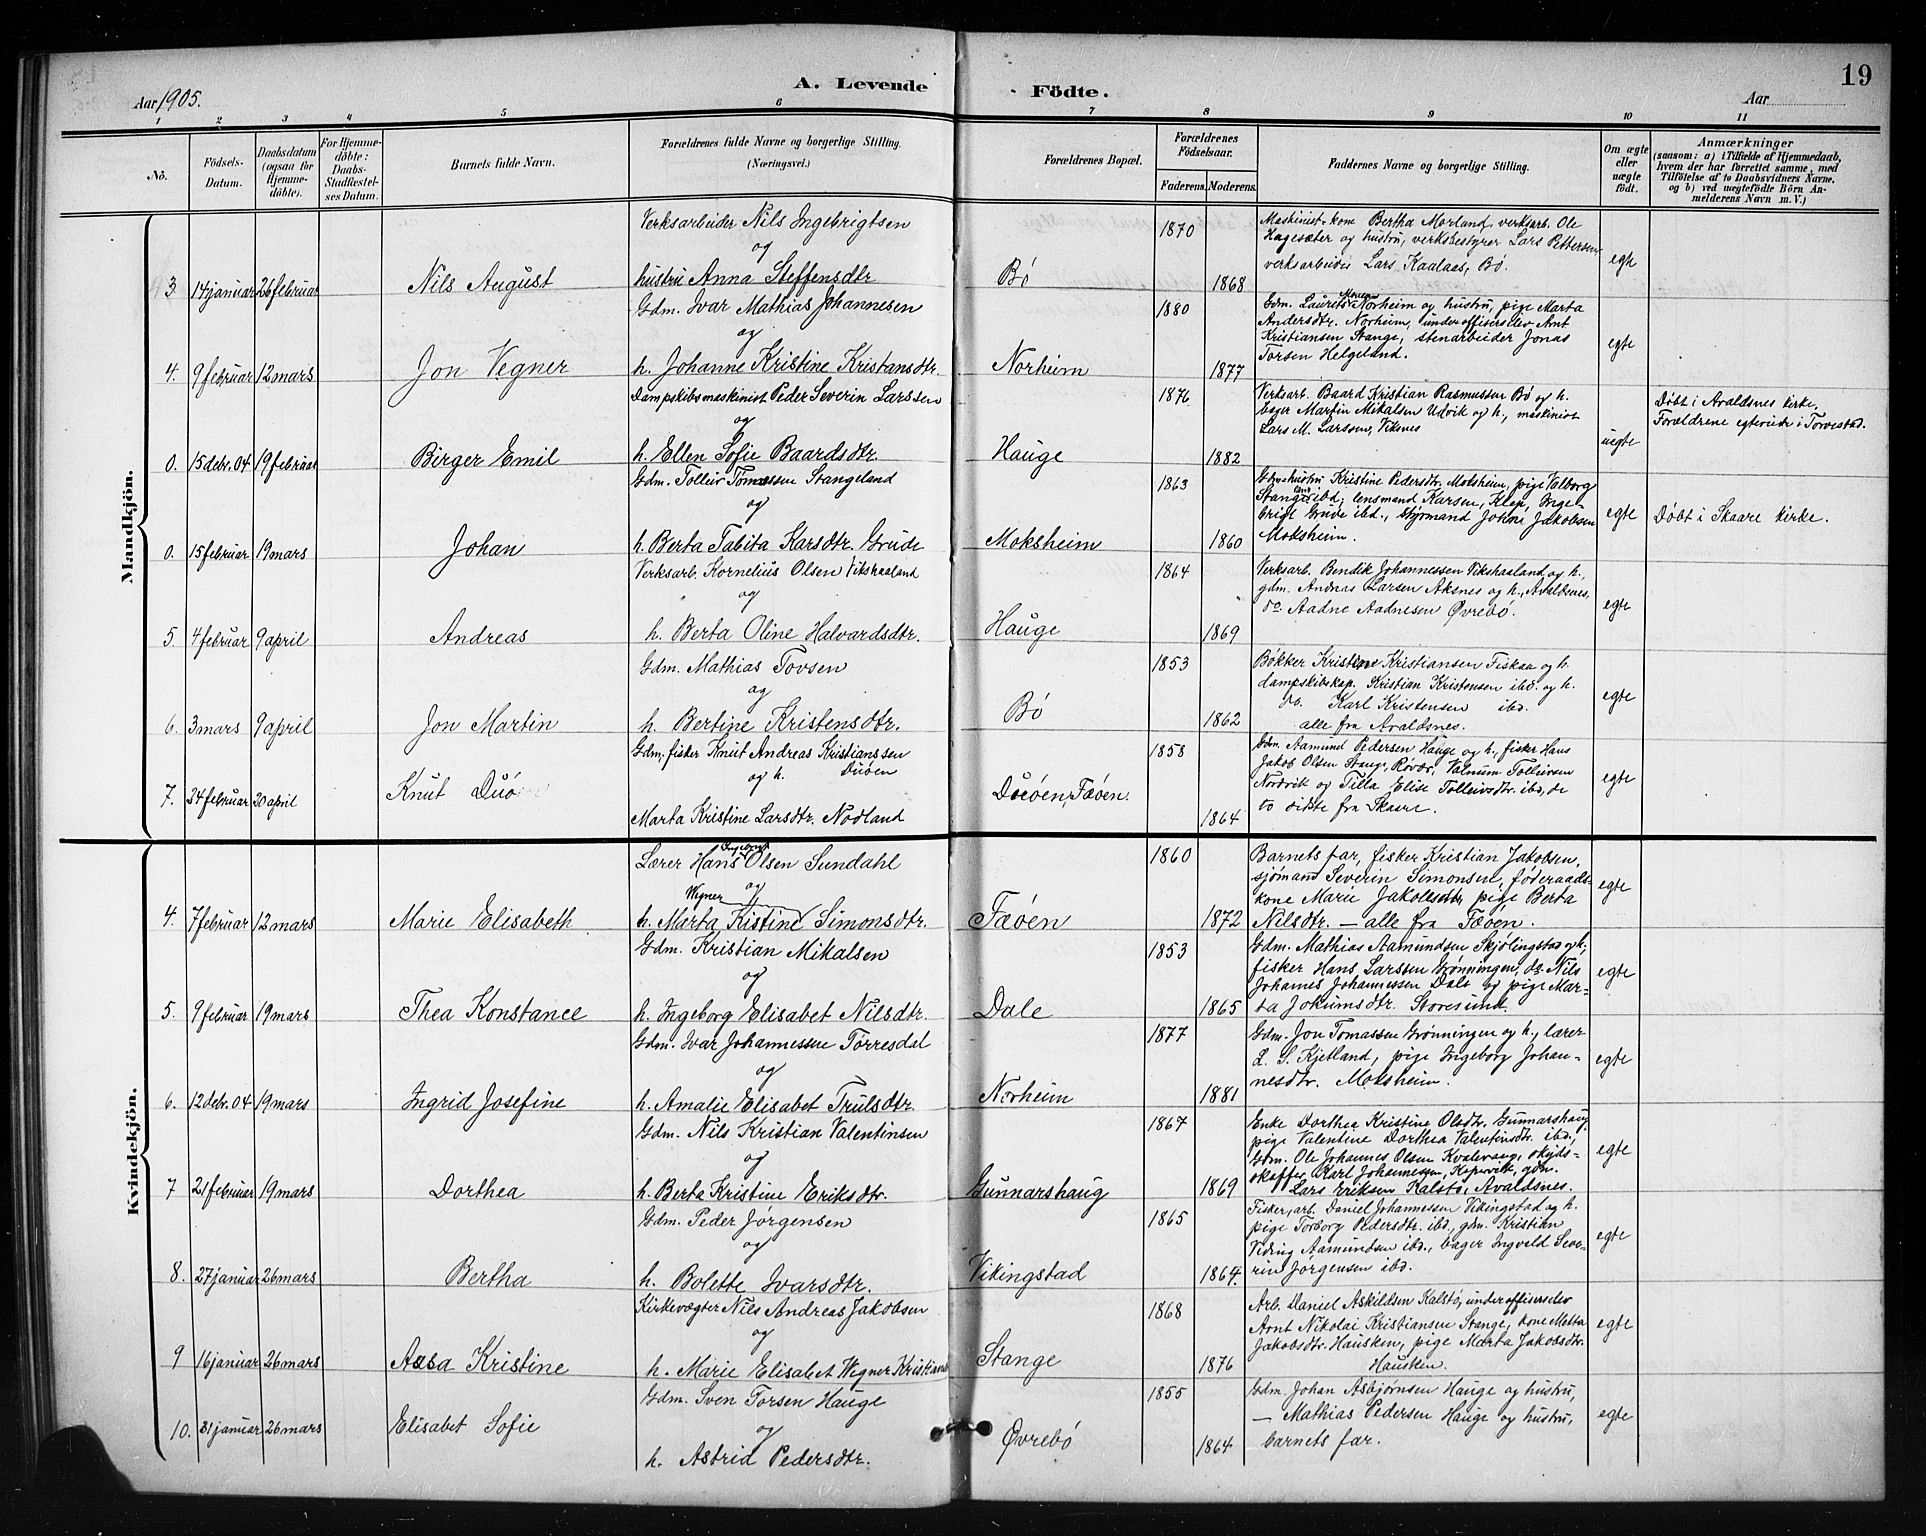 19
Aar 1905.
A. Levende Födte.
Aar
1 2 3 4 5 6 7 8 9 10 11
No.
Födsels-Datum.
Daabsdatum (ogsaa for Hjemmedöbte).
For Hjemmedöbte: Daabs-Stadfestelses Datum.
Barnets fulde Navn.
Forældrenes fulde Navne og borgerlige Stilling. (Næringsvei.)
Forældrenes Bopæl.
Forældrenes Födselsaar.
Faderens. Moderens.
Faddernes Navne og borgerlige Stilling.
Om ægte eller uægte födt.
Anmærkninger
(saasom: a) i Tilfælde af Hjemmedaab, hvem der har forrettet samme, med Tilföielse af to Daabsvidners Navne, og b) ved uægtefödte Börn Anmelderens Navn m. V.)
Mandkjön.
Verksarbeider Nils Ingebrigtsen
og
3 14 januar 26 februar Nils August hustru Anna Steffensdtr Bø 1870 1868
Maskinist. kone Bertha Morland, verksarb. Ole
Hagesæter og hustru, verksbestyrer Lars Pettersen,
verksarbeider Lars Kaalaas, Bø.
egte
Gdm. Ivar Mathias Johannesen
og
4. 9 februar 12 mars Jon Vegner h. Johanne Kristine Kristansdtr. Norheim 1880 1877
Gdm. Laurits Norheim og hustru, pige Marta
Andersdtr. Norheim, underofficerselev Arnt
Kristiansen Stange, stenarbeider Jonas
Torsen Helgeland.
egte
Dampskibsmaskinist Peder Severin Larssen
og
0. 15 debr. 04 19 februar Birger Emil h. Ellen Sofie Baardsdtr. Hauge 1876 1882
Verksarb. Baard Kristian Rasmussen Bø og h.
bager Martin Mikalsen Udvik og h., maskinist
Lars M. Larssen, Viknes
uegte
Døbt i Avaldsnes kirke.
Forældrene egteviede i Torvestad.
Gdm. Tolleiv Tomassen Stangeland
og
0. 15 februar 19 mars Johan h. Berta Tabita Larsdtr. Grude Moksheim 1863 1860
Gdm-hustru Kristine Pedersdtr. Moksheim, pige Valborg
Stangeland ibd., lensmand Karsen, Klep, Inge-
brigt Grude ibd., styrmand Johne Jakobsen
Moksheim.
egte
Døbt i Skaare kirke.
Verksarb. Kornelius Olsen Vikshaaland
og
5. 4 februar 9 april Andreas h. Berta Oline Halvardsdtr. Hauge 1864 1869
Verksarb. Bendik Johannessen Vikshaaland og h.,
gdm. Andreas Larsen Aksnes og h., Avaldsnes,
do. Aadne Aadnesen Øvrebø.
egte
Gdm. Mathias Tovsen
og
6. 3 mars 9 april Jon Martin h. Bertine Kristensdtr. Bø 1853 1862
Bøkker Kristen Kristiansen Fiskaa og h.
dampskibskap. Kristian Kristensen ibd. og h.
do. Karl Kristensen ibd.
alle fra Avaldsnes.
egte
Gdm. fisker Knut Andreas Kristianssen
og h. Duøen
7. 24 februar 30 april Knut Duø Marta Kristine Larsdtr. Nodland Duøen, Fæøen. 1858 1864
Gdm. Aamund Pedersen Hauge og h., fisker Hans
Jakob Olsen Stange, Røvær, Valnum Tolleivsen
Nordvik og Tilla Elise Tolleivsdtr. ibd., de
to sidste fra Skaare.
egte
Kvindekjön.
Lærer Hans Olsen Sundahl
og
Wegner
4. 7 februar 12 mars Marie Elisabeth h. Marta Kistine Simonsdtr. Fæøen 1860 1872
Barnets far, fisker Kristian Jakobsen,
sjømand Severin Simonsen, føderaads-
kone Marie Jakobsdtr, pige Berta
Nilsdtr. — alle fra Fæøen.
egte
Gdm. Kristian Mikalsen
og
5. 9 februar 19 mars Thea Konstance h. Ingeborg Elisabet Nilsdtr. Dale 1853 1865
Gdm. Mathias Aamundsen Skjølingstad og h.,
fisker Hans Larssen Grønningen, do. Nils
Johannes Johannessen Dale og pige Mar-
ta Jokumsdtr. Storesund.
egte
Gdm. Ivar Johannessen Torresdal
og
6. 12 debr. 04 19 mars Ingrid Josefine h. Amalie Elisabet Trulsdtr. Norheim 1877 1881
Gdm. Jon Tomassen Grønningen og h., lærer
L. S. Kjetland, pige Ingeborg Johan-
nesdtr. Moksheim.
egte
Gdm. Nils Kristian Valentinsen
og
7 21 februar 19 mars Dorthea h. Berta Kristine Eriksdtr. Gunnarshaug 1867 1869
Enke Dorthea Kristine Olsdtr. Gunnarshaug
pige Valentine Dorthea Valentinsdtr. ibd.,
Gdm. Ole Johannes Olsen Kvalevaag, skyds-
skaffer Karl Johannessen, Kopervik, gdm.
Lars Eriksen Kalstø, Avaldsnes.
egte
Gdm. Peder Jørgensen
og
8. 27 januar 26 mars Bertha h. Bolette Ivarsdtr. Vikingstad 1865 1864.
Fisker, arb. Daniel Johannessen Vikingstad og h.
pige Torborg Pedersdtr. ibd., gdm. Kristian
Viding Aamundsen ibd., bager Ingvald Seve-
rin Jørgensen ibd.
egte
Kirkevægter Nils Andreas Jakobsen
og
9 16 januar 26 mars Aasa Kristine h. Marie Elisabet Wegner Kristians Stange 1868 1876
Arb. Daniel Askildsen Kalstø, underofficerselev
Arnt Nikolai Kristiansen Stange, kone Metta
Jakobsdtr. Hausken, pige Marta Jakobsdtr.
Hausken.
egte
Gdm. Sven Torsen Hauge
og
10. 31 januar 26 mars Elisabet Sofie h. Astrid Pedersdtr. Øvrebø 1855 1864
Gdm. Johan Asbjørnsen Hauge og hustru,
— Mathias Pedersen Hauge og hustru,
barnets far.
egte